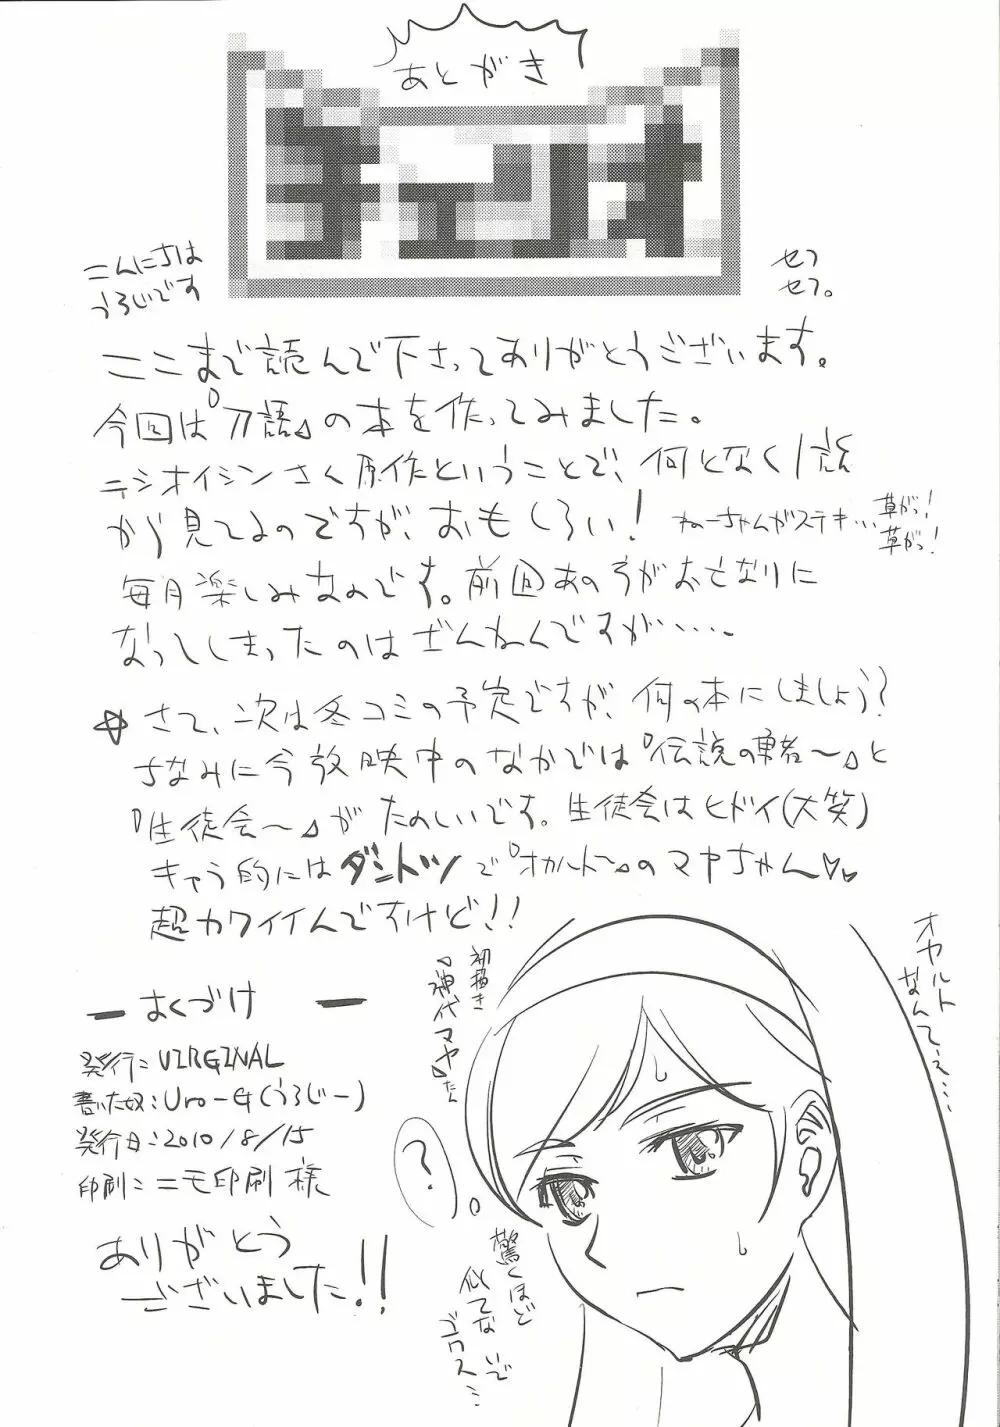 あとがき
チェリオ
こんにちは
うろじです
セフ
セフ。
ここまで読んで下さってありがとうございます。
今回は『刀語』の本を作ってみました。
ニシオイシンさん原作ということで、何となく1話
から見てるのですが、おもしろい!
ねーちゃんがステキ…
草がっ!
草がっ!
毎月楽しみなのです。前回あの子がおとなりに
なってしまったのはざんねんですが・・・・。
☆さて、次は冬コミの予定ですが、何の本にしましょう?
ちなみに今放映中のなかでは『伝説の勇者〜』と
『生徒会〜』がたのしいです。生徒会はヒドイ(大笑)
キャラ的にはダントツで『オカルト〜』のマヤちゃん♡♡
超カワイイんですけど!!
オカルト
なんてぇ…
初描き
『神代マヤ』たん
ー おくづけ ー
発行:VIRGINAL
書いた奴:Uro-G(うろじー)
発行日:2010/8/15
印刷:ニモ印刷 様
ありがとう
ございました!!
?
驚くほど
似てないで
ゴワス…